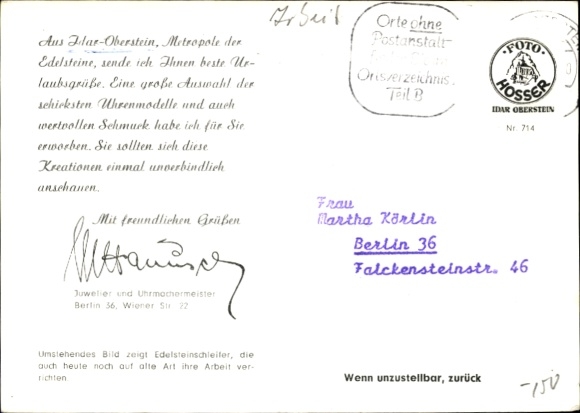 Arbeit
Aus Idar-Oberstein, Metropole der
Edelsteine, sende ich Ihnen beste Ur-
laubsgrüße. Eine große Auswahl der
schicksten Uhrenmodelle und auch
wertvollen Schmuck habe ich für Sie
erworben. Sie sollten sich diese
Kreationen einmal unverbindlich
anschauen.
Mit freundlichen Grüßen
Juwelier und Uhrmachermeister
Berlin 36, Wiener Str. 22
Umstehendes Bild zeigt Edelsteinschleifer, die
auch heute noch auf alte Art ihre Arbeit ver-
richten.
Orte ohne
Postanstalt
Ortsverzeichnis
Teil B
· FOTO ·
HOSSER
IDAR OBERSTEIN
Nr. 714
Frau
Martha Körlin
Berlin 36
Falckensteinstr. 46
Wenn unzustellbar, zurück
-,50